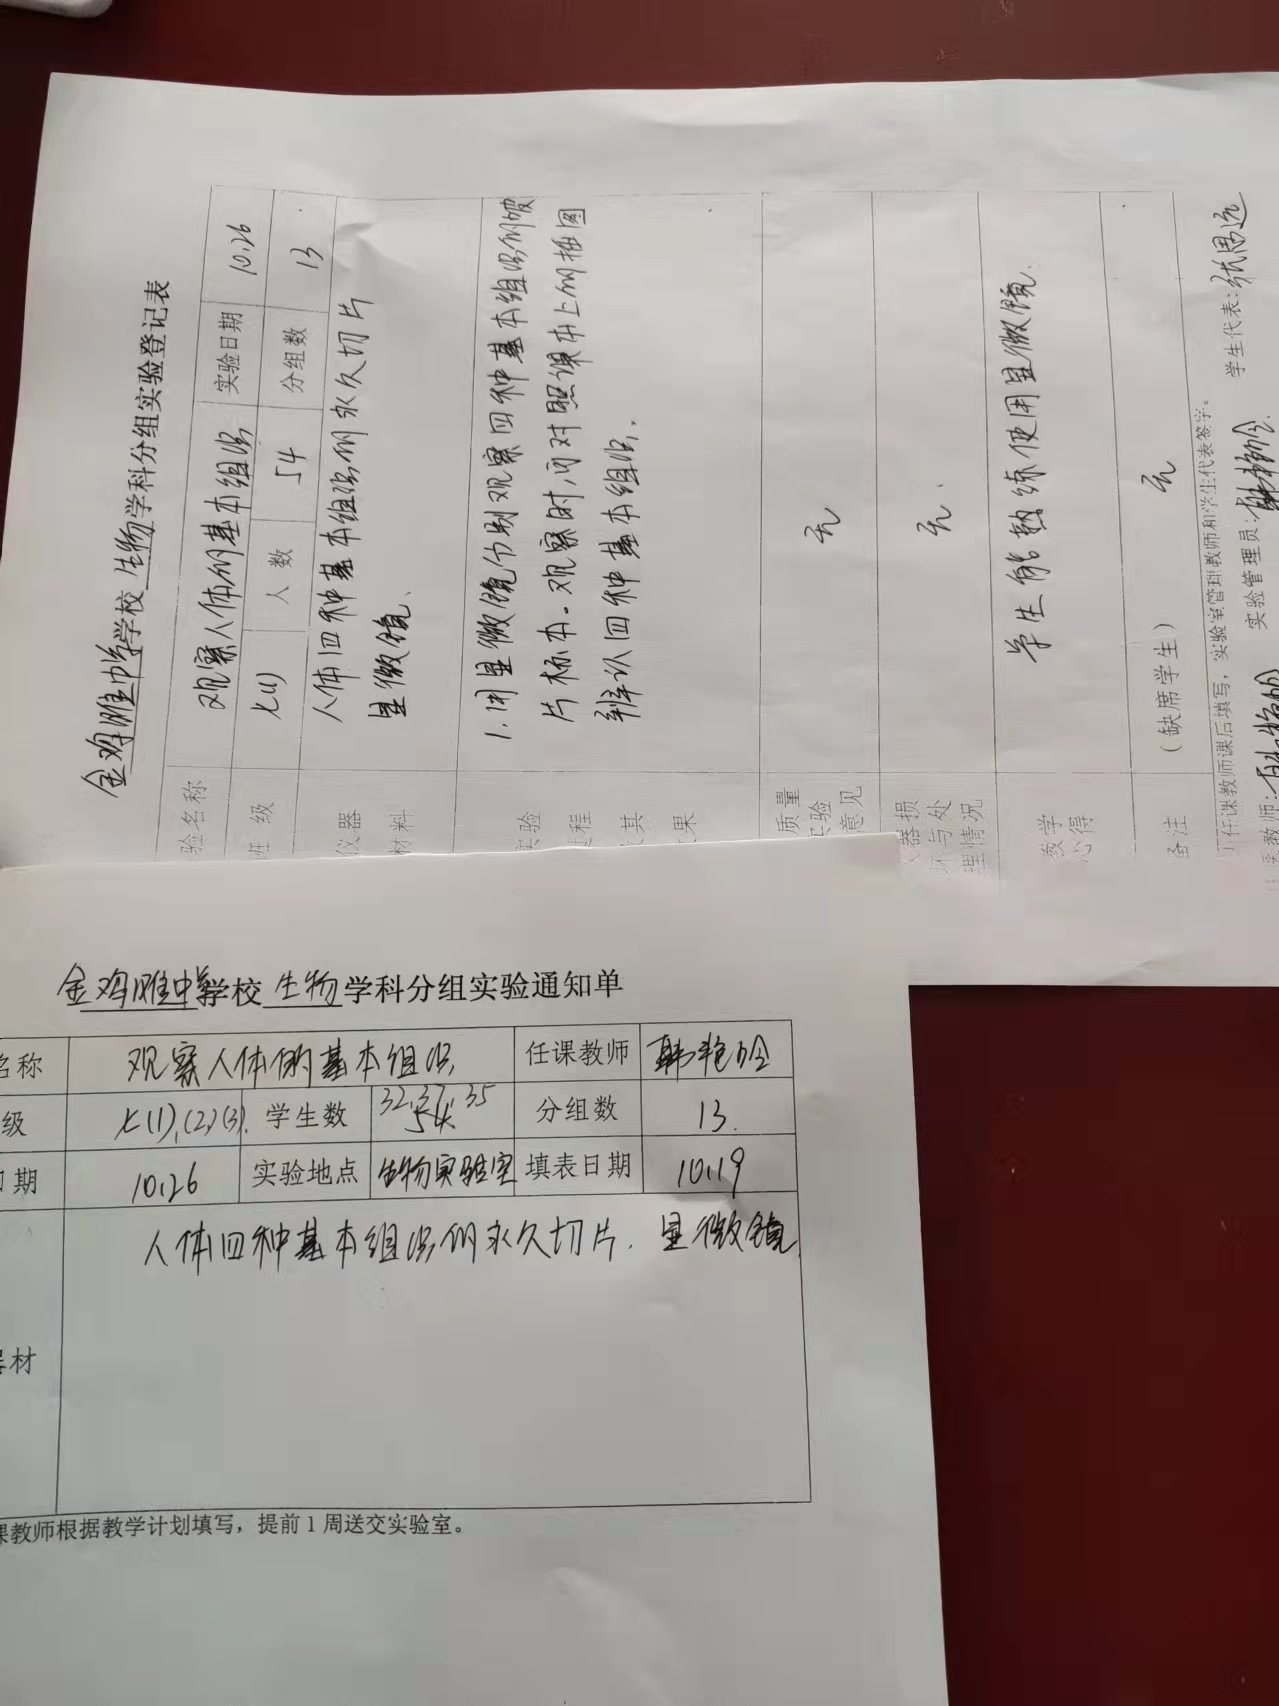 金鸡滩中学学校 生物 学科分组实验登记表
验名称 观察人体的基本组织 实验日期 10.26
班 级 七(1) 人 数 54 分组数 13
仪器 人体四种基本组织的永久切片
材料 显微镜.
实验 1.用显微镜分别观察四种基本组织的玻
过程 片标本.观察时,可对照课本上的插图
其 辨认四种基本组织.
果
质量
实验 无
意见
器损
坏与处 无.
理情况
教学 学生能熟练使用显微镜.
心得
备注 (缺席学生) 无
任课教师课后填写,实验室管理教师和学生代表签字。
教师: 实验管理员: 学生代表:张思远
金鸡滩中学学校 生物 学科分组实验通知单
名称 观察人体的基本组织 任课教师 韩艳玲
级 七(1),(2)(3). 学生数 32,37,35 54. 分组数 13.
日期 10.26 实验地点 生物实验室 填表日期 10.19
人体四种基本组织的永久切片. 显微镜
器材
课教师根据教学计划填写,提前1周送交实验室。